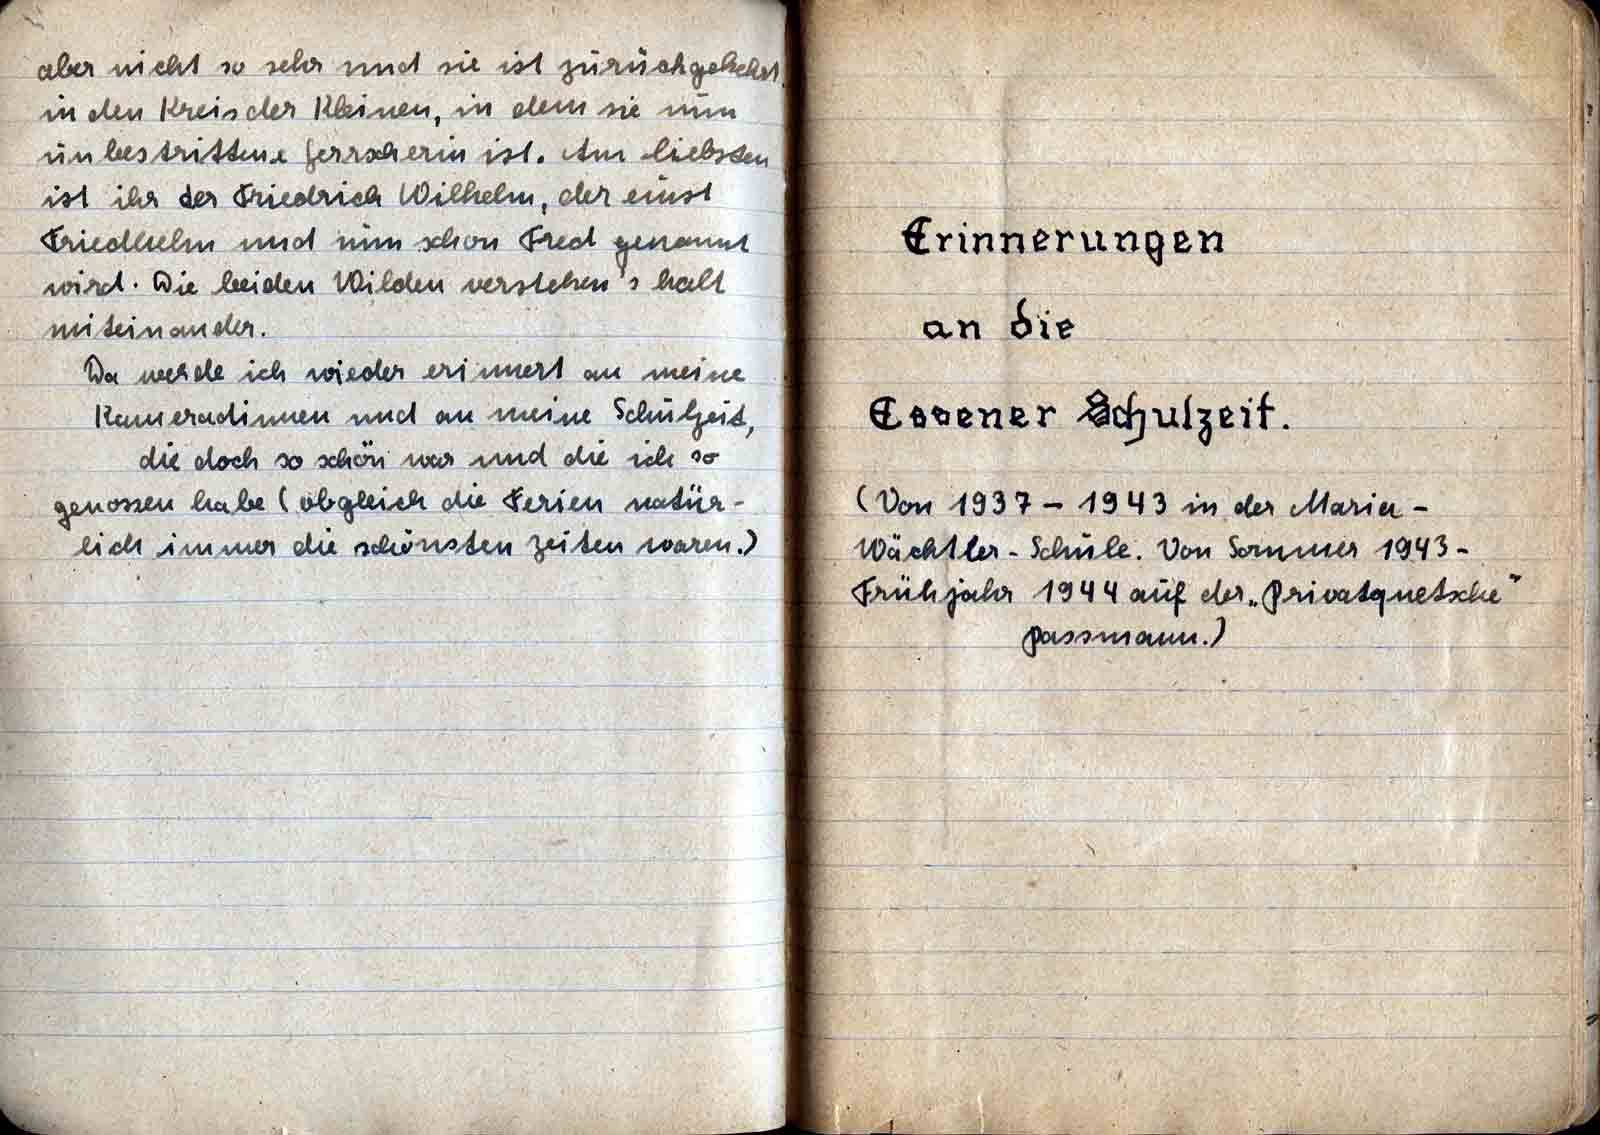 aber nicht so sehr und sie ist zurückgekehrt
in den Kreis der Kleinen, in dem sie nun
unbestrittene Herrscherin ist. Am liebsten
ist ihr der Friedrich Wilhelm, der einst
Friedhelm und nun schon Fred genannt
wird. Die beiden Wilden verstehen's halt
miteinander.
Da werde ich wieder erinnert an meine
Kameradinnen und an meine Schulzeit,
die doch so schön war und die ich so
genossen habe (obgleich die Ferien natür-
lich immer die schönsten Zeiten waren.)
Erinnerungen
an die
Essener Schulzeit.
(Von 1937 - 1943 in der Maria-
Wächtler-Schule. Von Sommer 1943-
Frühjahr 1944 auf der „Privatquetsche"
Passmann.)